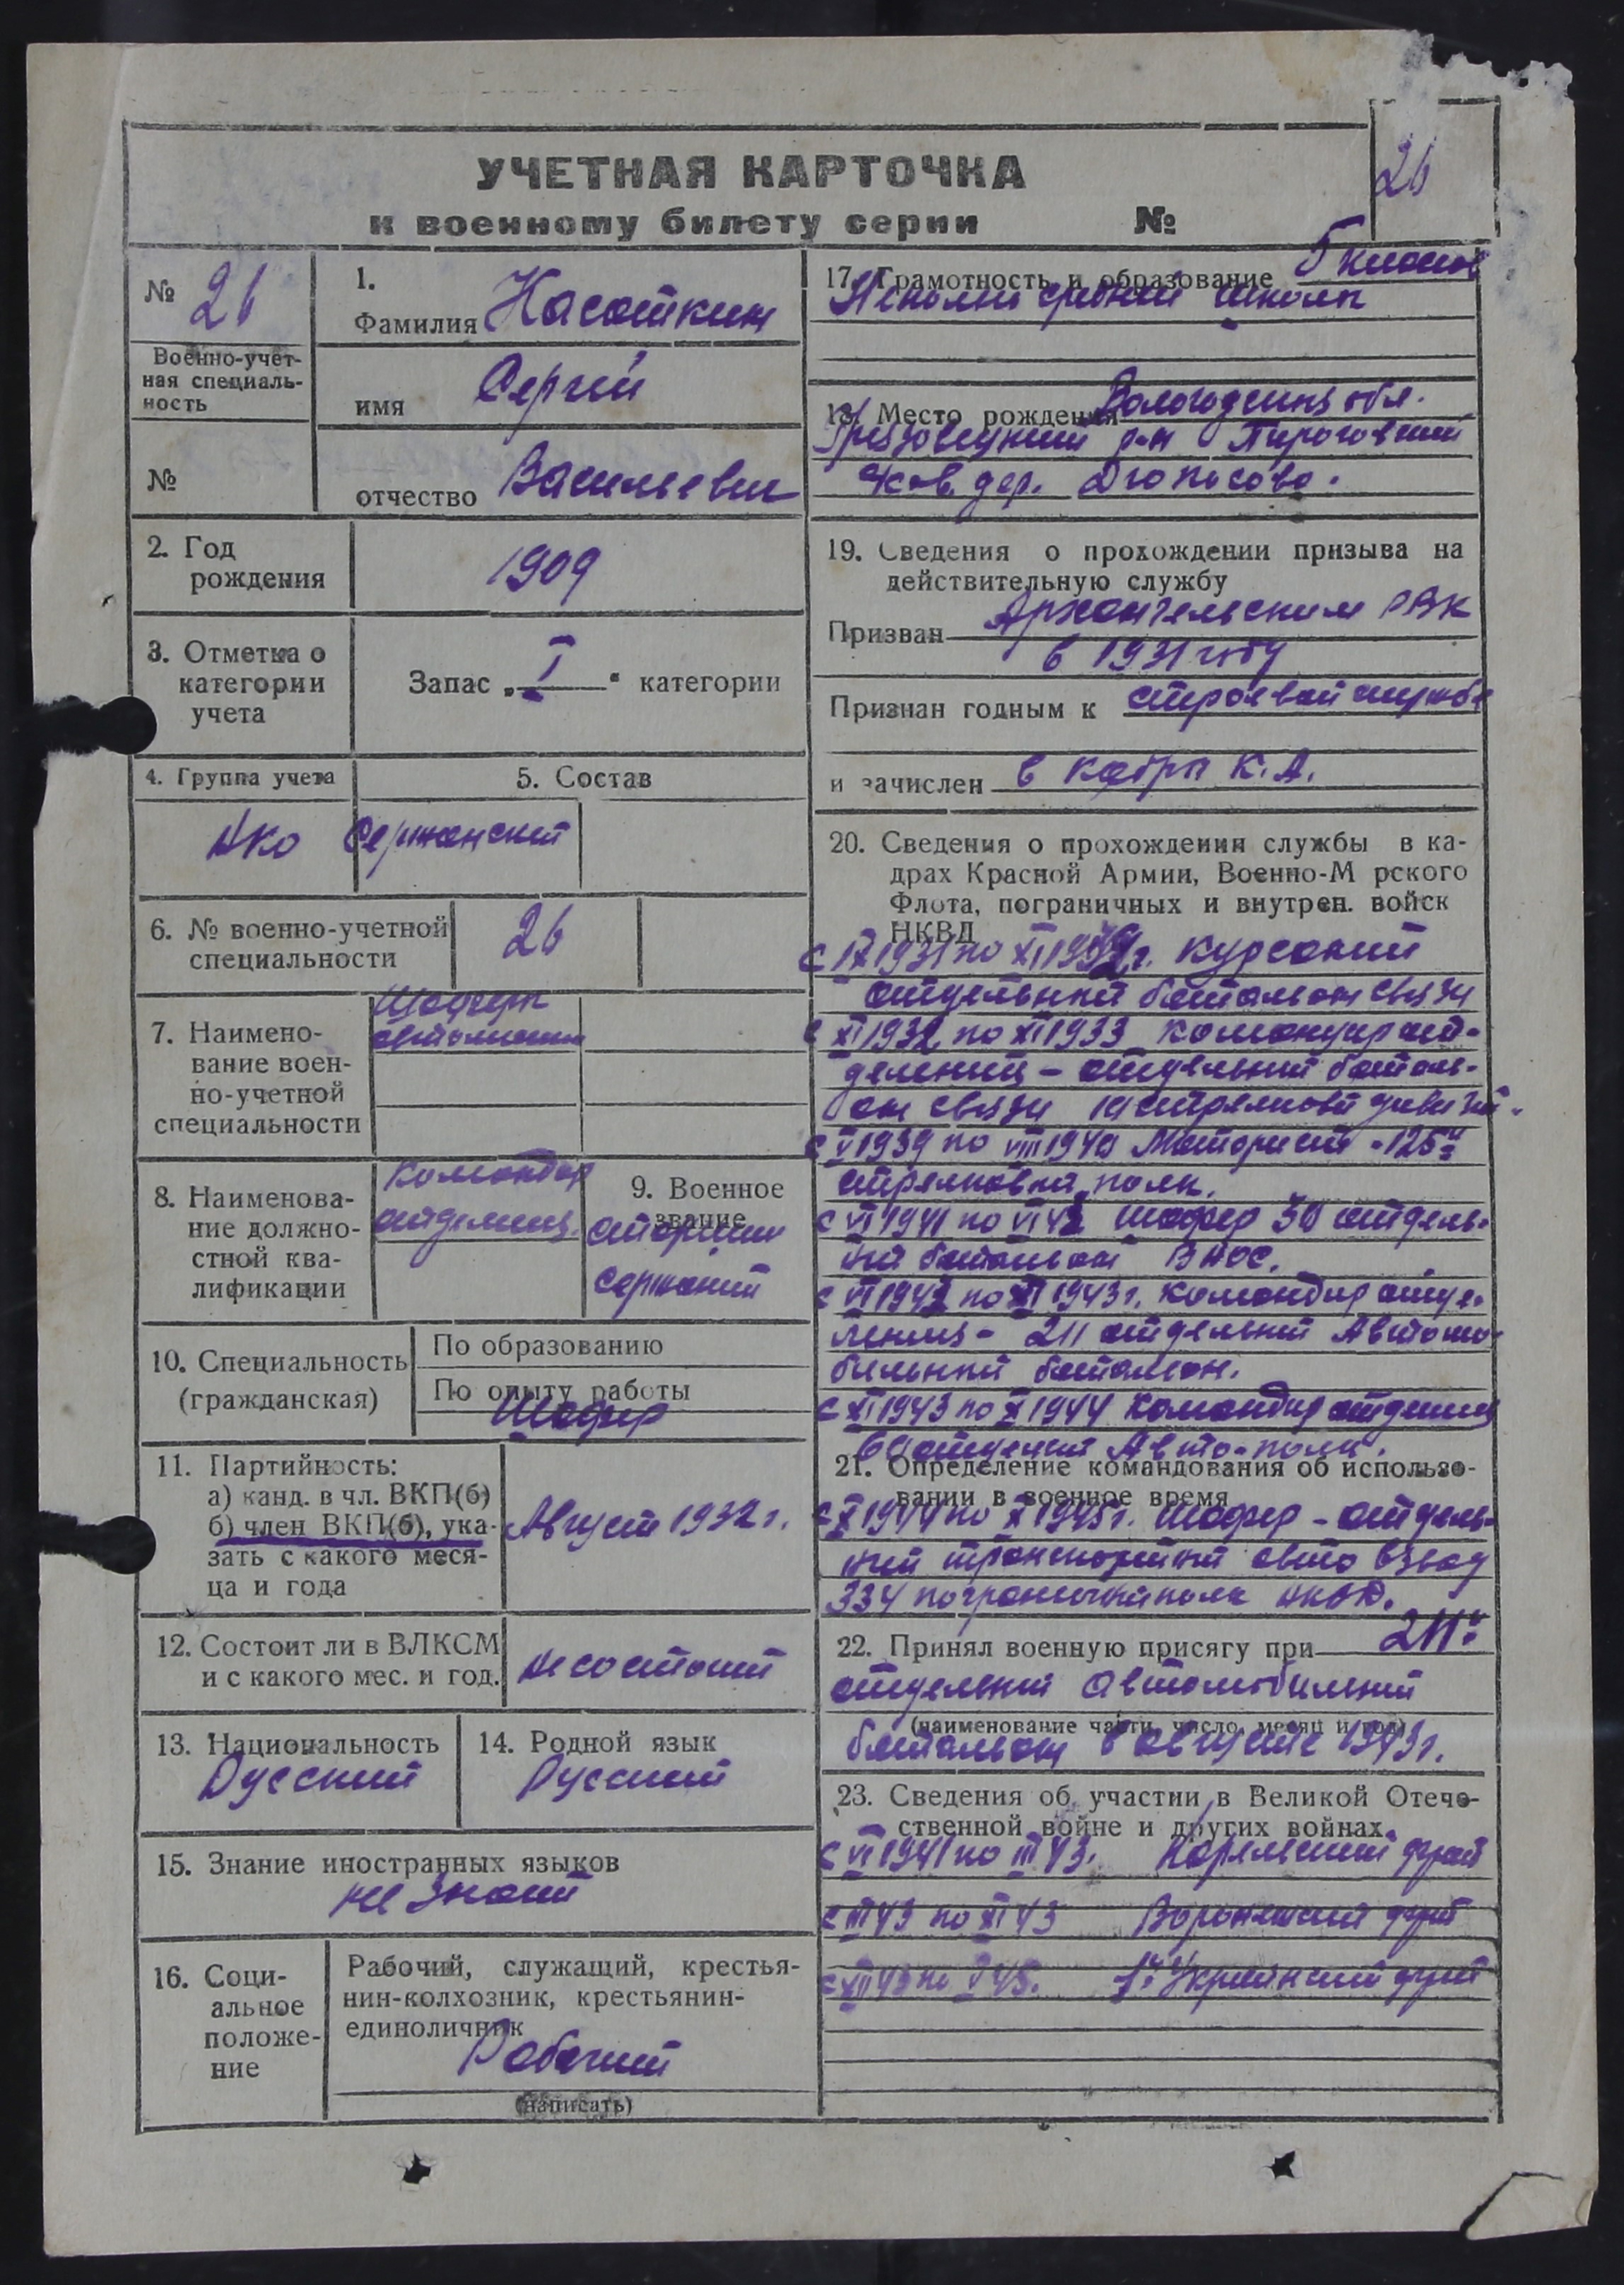 УЧЕТНАЯ КАРТОЧКА
к военному билету серии №
26
№ 26
Военно-учет-
ная специаль-
ность
№
1.
Фамилия Касаткин
имя Сергей
отчество Васильевич
2. Год
рождения
1909
3. Отметка о
категории
учета
Запас „ I " категории
4. Группа учета
НКО
5. Состав
Сержанский
6. № военно-учетной
специальности
26
7. Наимено-
вание воен-
но-учетной
специальности
Шофера
автомашин
8. Наименова-
ние должно-
стной ква-
лификации
Командир
отделения
9. Военное
звание
старший
сержант
10. Специальность
(гражданская)
По образованию
По опыту работы
Шофер
11. Партийность:
а) канд. в чл. ВКП(б)
б) член ВКП(б), ука-
зать с какого меся-
ца и года
Август 1932 г.
12. Состоит ли в ВЛКСМ
и с какого мес. и год.
не состоит
13. Национальность
Русский
14. Родной язык
Русский
15. Знание иностранных языков
не знает
16. Соци-
альное
положе-
ние
Рабочий, служащий, крестья-
нин-колхозник, крестьянин-
единоличник
Рабочий
(написать)
17. Грамотность и образование 5 классов
средней школы
18. Место рождения Вологодская обл.
Грязовецкий р-н
дер.
19. Сведения о прохождении призыва на
действительную службу
Призван Архангельским РВК
в 1931 году
Признан годным к строевой службе
и зачислен в кадры К.А.
20. Сведения о прохождении службы в ка-
драх Красной Армии, Военно-М рского
Флота, пограничных и внутрен. войск
НКВД
с IX 1931 по XI 1932 г. курсант
отдельный батальон связи
с XI 1932 по XI 1933 командир от-
деления – отдельный баталь-
он связи стрелковой дивизии.
с V 1939 по VIII 1940 Моторист - 125й
стрелковый полк.
с VI 1941 по VI 42 шофер 50 отдель-
ный батальон ВНОС.
с VI 1942 по XI 1943 г. командир отде-
ления - 211 отдельный Автомо-
бильный батальон.
с XI 1943 по X 1944 Командир отделения
Авто-полк.
21. Определение командования об использо-
вании в военное время
с X 1944 по X 1945 г. шофер - отдель-
ный транспортный авто взвод
334 пограничный полк НКВД.
22. Принял военную присягу при 211й
отдельный автомобильный
(наименование части, число, месяц и год)
батальон в августе 1943 г.
23. Сведения об участии в Великой Отече-
ственной войне и других войнах
с VI 1941 по III 43. Карельский фронт
с III 43 по XI 43 Воронежский фронт
с XII 43 по V 45. 1й Украинский фронт